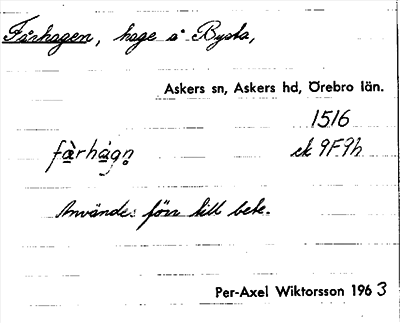 Fårhagen, hage å Bysta,
Askers sn, Askers hd, Örebro län.
1516
fàrhágn̥ ek 9F9h
Användes förr till bete.
Per-Axel Wiktorsson 1963